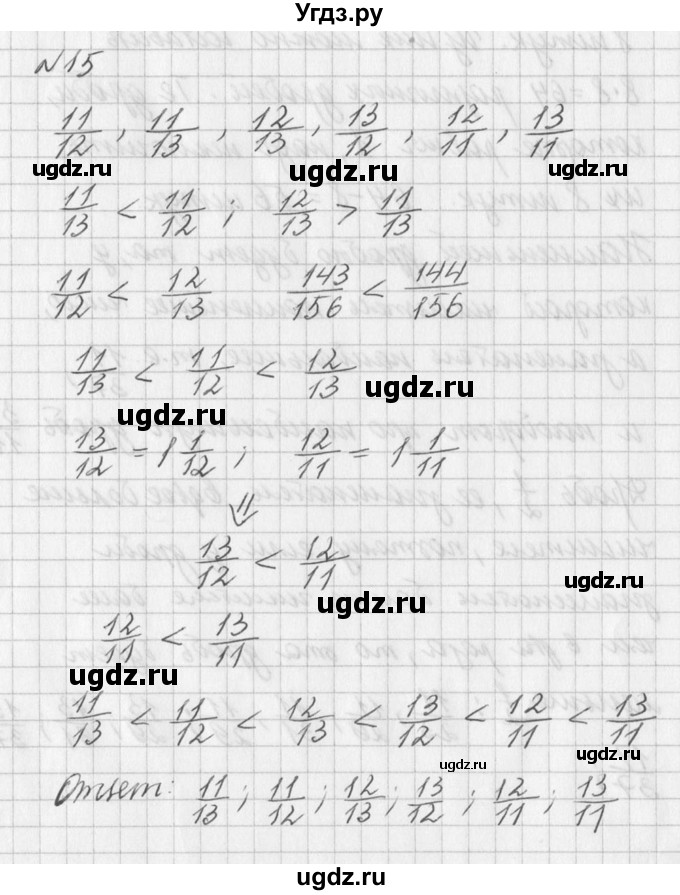 Угдз.ру
№15
11/12, 11/13, 12/13, 13/12, 12/11, 13/11
ugdz.ru
ugdz.ru
ugdz.ru
11/13 < 11/12; 12/13 > 11/13
11/12 < 12/13 143/156 < 144/156
11/13 < 11/12 < 12/13
ugdz.ru
ugdz.ru
13/12 = 1 1/12; 12/11 = 1 1/11
⇓
13/12 < 12/11
ugdz.ru
ugdz.ru
12/11 < 13/11
ugdz.ru
11/13 < 11/12 < 12/13 < 13/12 < 12/11 < 13/11
ugdz.ru
ugdz.ru
Ответ: 11/13; 11/12; 12/13; 13/12; 12/11; 13/11
ugdz.ru
ugdz.ru